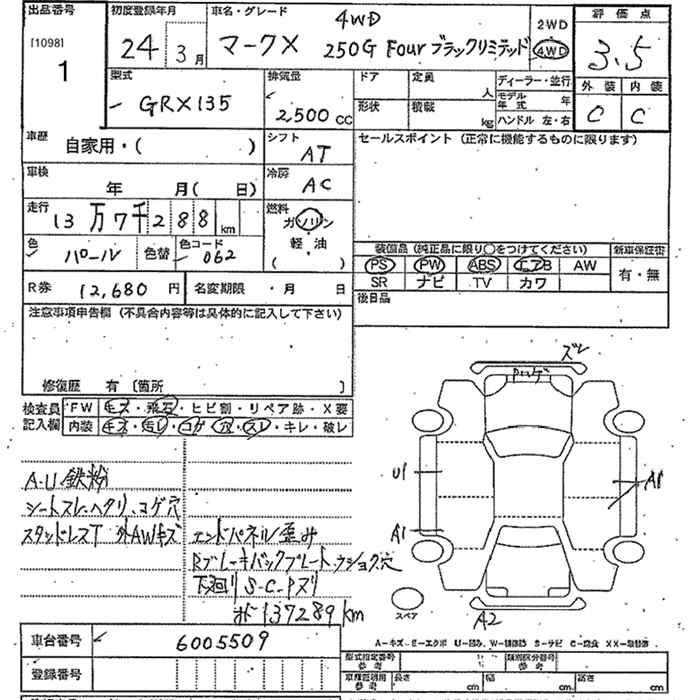 出品番号 初度登録年月 車名・グレード 評価点
[1098]
1
24 3月
マークX 4WD
250G Four ブラックリミテッド
2WD
4WD
3.5
外装 内装
C C
型式
GRX135
排気量
2,500 CC
ドア 定員 人
形状 積載 kg
ディーラー・並行
モデル年式 年
ハンドル 左・右
車歴
自家用・( )
シフト
AT
セールスポイント (正常に機能するものに限ります)
車検
年 月( 日)
冷房
AC
走行
13万7千288 km
燃料
ガソリン
軽・油
( )
色
パール 色替
色コード
062
装備品 (純正品に限り○をつけてください) 新車保証書
PS PW ABS エアB AW
SR ナビ TV カワ
有・無
R券 12,680 円 名変期限 ・月 日
後日品
注意事項申告欄 (不具合内容等は具体的に記入して下さい)
修復歴 有 [箇所 ]
検査員記入欄
FW キズ・飛石・ヒビ割・リペア跡・X要
内装 キズ・汚レ・コゲ・穴・スレ・キレ・破レ
A-U 鉄粉
シートスレ、ヘタリ、コゲ穴
スタッドレスT 外AWキズ
エンドパネル歪み
Rブレーキバックプレート、クショク穴
下廻り S-C-Pヌリ
メーター 137289km
ズレ
U1
A1
A1
A2
スペア
A-キズ E-エクボ U-凹み W-補修跡 S-サビ C-腐食 XX-取替済
車台番号 6005509
登録番号
型式指定番号 参考
類別区分番号 参考
車庫証明用 参考 長さ cm 幅 cm 高さ cm